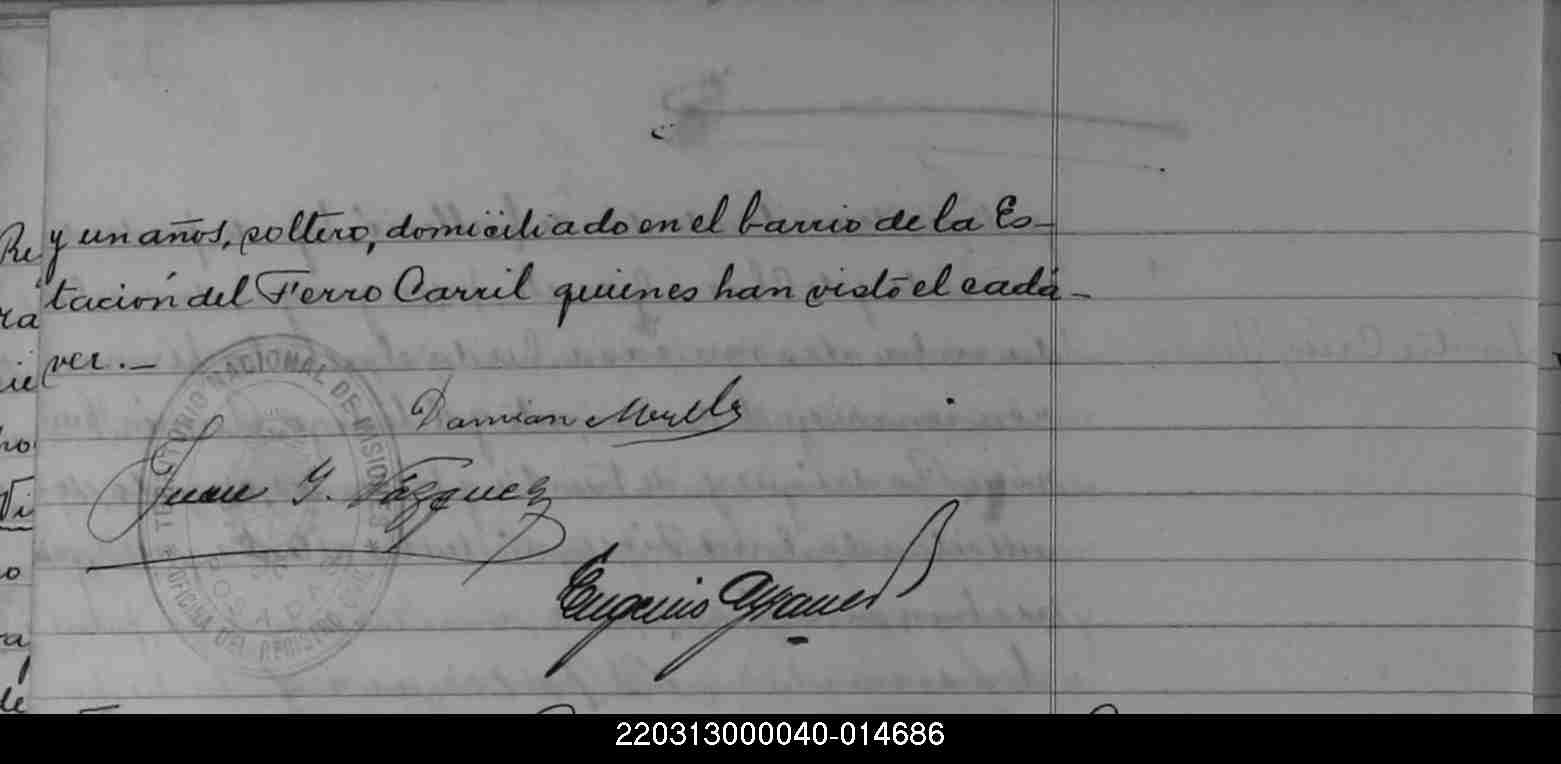 y un años, soltero, domiciliado en el barrio de la Es-
tación del Ferro Carril quienes han visto el cadá-
ver.-
Damian
Juan G. Vázquez
Eugenio
TERRITORIO NACIONAL DE MISIONES
* OFICINA DEL REGISTRO CIVIL *
POSADAS
Re
ra
ie
ho
Vi
o
a
de
220313000040-014686